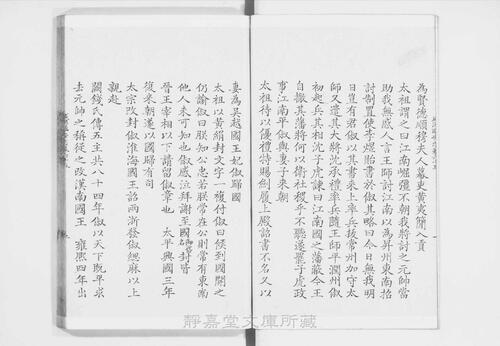 為賢德順穆夫人幕吏黃夷簡入貢
太祖謂之曰江南崛彊不朝我將討之元帥當
助我無惑人言王師討江南以為昇州東南招
討制置使李煜貽書於俶其略曰今日無我明
日豈有君俶以其書來上率兵拔常州加守太
師又遣其大將沈承禮率兵隨王師平潤州俶
初起兵其相沈子虎諫曰江南國之藩蔽今王
自撤其藩將何以衛社稷乎不聽遂罷子虎政
事江南平俶與妻子來朝
太祖待以優禮特賜劍履上殿詔書不名又以
妻為吳越國王妃俶歸國
太祖以黃絹封文字一複付俶曰候到國開之
仍諭俶曰朕知公忠若朕常在公則常有東南
他人未可知也俶感泣拜謝至國啟封皆
晉王宰相以下請留俶章也 太平興國三年
復來朝遂以國歸有司
太宗改封俶淮海國王詔兩浙發俶緦麻以上
親赴
闕錢氏傳五主共八十四年俶以天下既平求
去元帥之稱從之改漢南國王 雍熙四年出
靜嘉堂文庫所藏